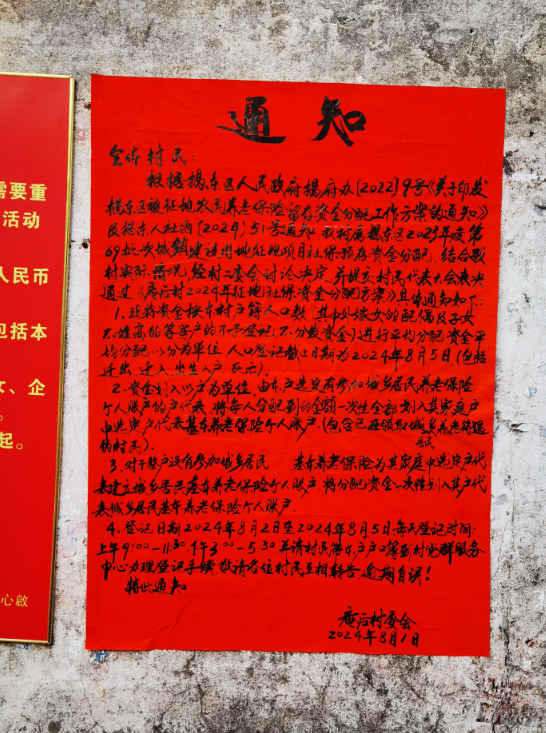 通知
全体村民：
根据揭东区人民政府揭府办[2022]9号《关于印发
揭东区被征地农民养老保险留存资金分配工作方案的通知》
及揭东人社函(2024)51号通知,我村属揭东区2023年度第
69批次城镇建设用地征地项目社保预存资金分配,结合我
村实际情况,经村二委会讨论决定,并提交村民代表大会表决
通过《庵后村2024年征地社保资金分配方案》具体通知如下:
1.现将资金按本村户籍人口数(其中外嫁女的配偶及子女
不姓高的等寄户的不予登记,不分数资金)进行平均分配,资金平
均分配以分为单位,人口登记截止日期为2024年8月5日(包括
迁出、迁入、出生入户、死亡).
2.资金划入以户为单位,由本户选定有参加城乡居民养老保险
个人账户的户代表,将每人分配到的金额一次性全部划入其家庭户
中选定户代表基本养老保险个人账户.(包含已在领取城乡居民养老待遇
的村民).
3.对于整户没有参加城乡居民 基本养老保险为其家庭中选定户代
表建立城乡居民基本养老保险个人账户,将分配资金一次性划入其户代
表城乡居民基本养老保险个人账户.
4.登记日期2024年8月2日至2024年8月5日每天登记时间:
上午9:00—11:30.下午3:00—5:30.请村民携东户户口簿到村党群服务
中心办理登记手续,敬请各位村民互相转告,逾期自误!
特此通知
庵后村委会
2024年8月1日
需要重
活动
人民币
包括本
女、企
。
起。
心啟